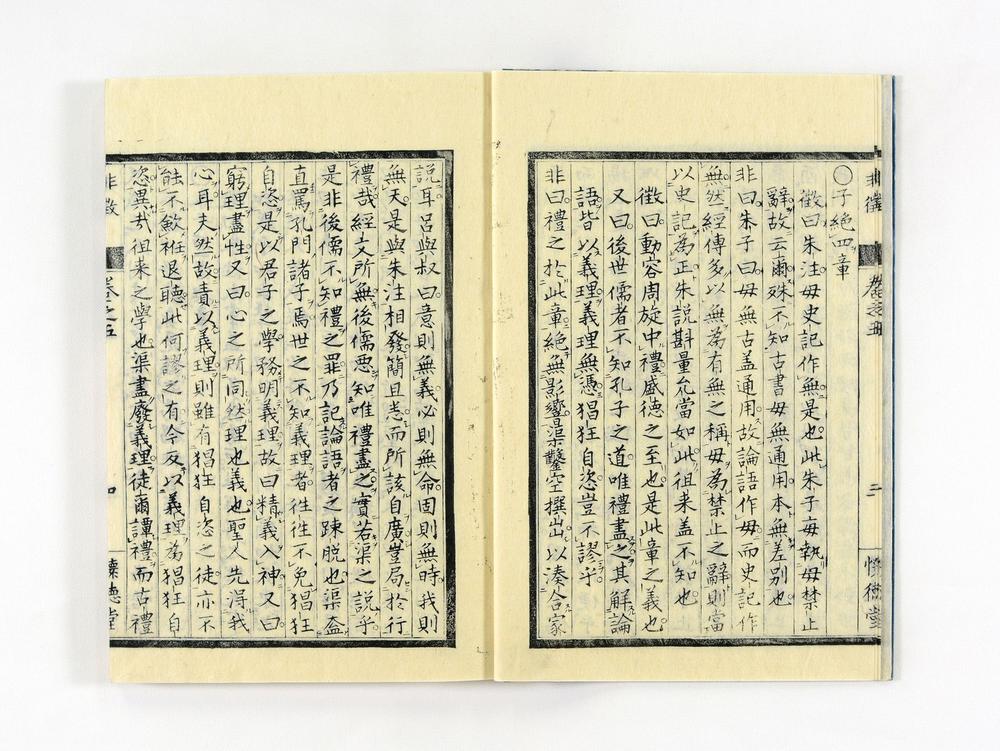 非徵
卷之五
二
懷德堂
子絕四章
徵曰朱注毋史記作無是也此朱子毎執毋禁止
辭故云爾殊不知古書毋無通用本無差別也
非曰朱子曰毋無古蓋通用故論語作毋而史記作
無然經傳多以無為有無之稱毋為禁止之辭則當
以史記為正朱說斟量允當如此徂來蓋不知也
徵曰動容周旋中禮盛德之至也是此章之義也
又曰後世儒者不知孔子之道唯禮盡之其解論
語皆以義理義理無憑猖狂自恣豈不謬乎
非曰禮之於此章絕無影響渠鑿空撰出以湊合家
說耳呂與叔曰意則無義必則無命固則無時我則
無天是與朱注相發簡且悉而所該自廣豈局於行
禮哉經文所無後儒惡知唯禮盡之實若渠之說乎
是非後儒不知禮之罪乃記論語者之踈脫也渠盍
直罵孔門諸子焉世之不知義理者徃徃不免猖狂
自恣是以君子之學務明義理故曰精義入神又曰
窮理盡性又曰心之所同然理也義也聖人先得我
心耳夫然故責以義理則雖有猖狂自恣之徒亦不
能不斂袵退聽此何謬之有今反以義理為猖狂自
恣異哉徂來之學也渠盡廢義理徒爾譚禮而古禮
非徵
卷之五
懷德堂